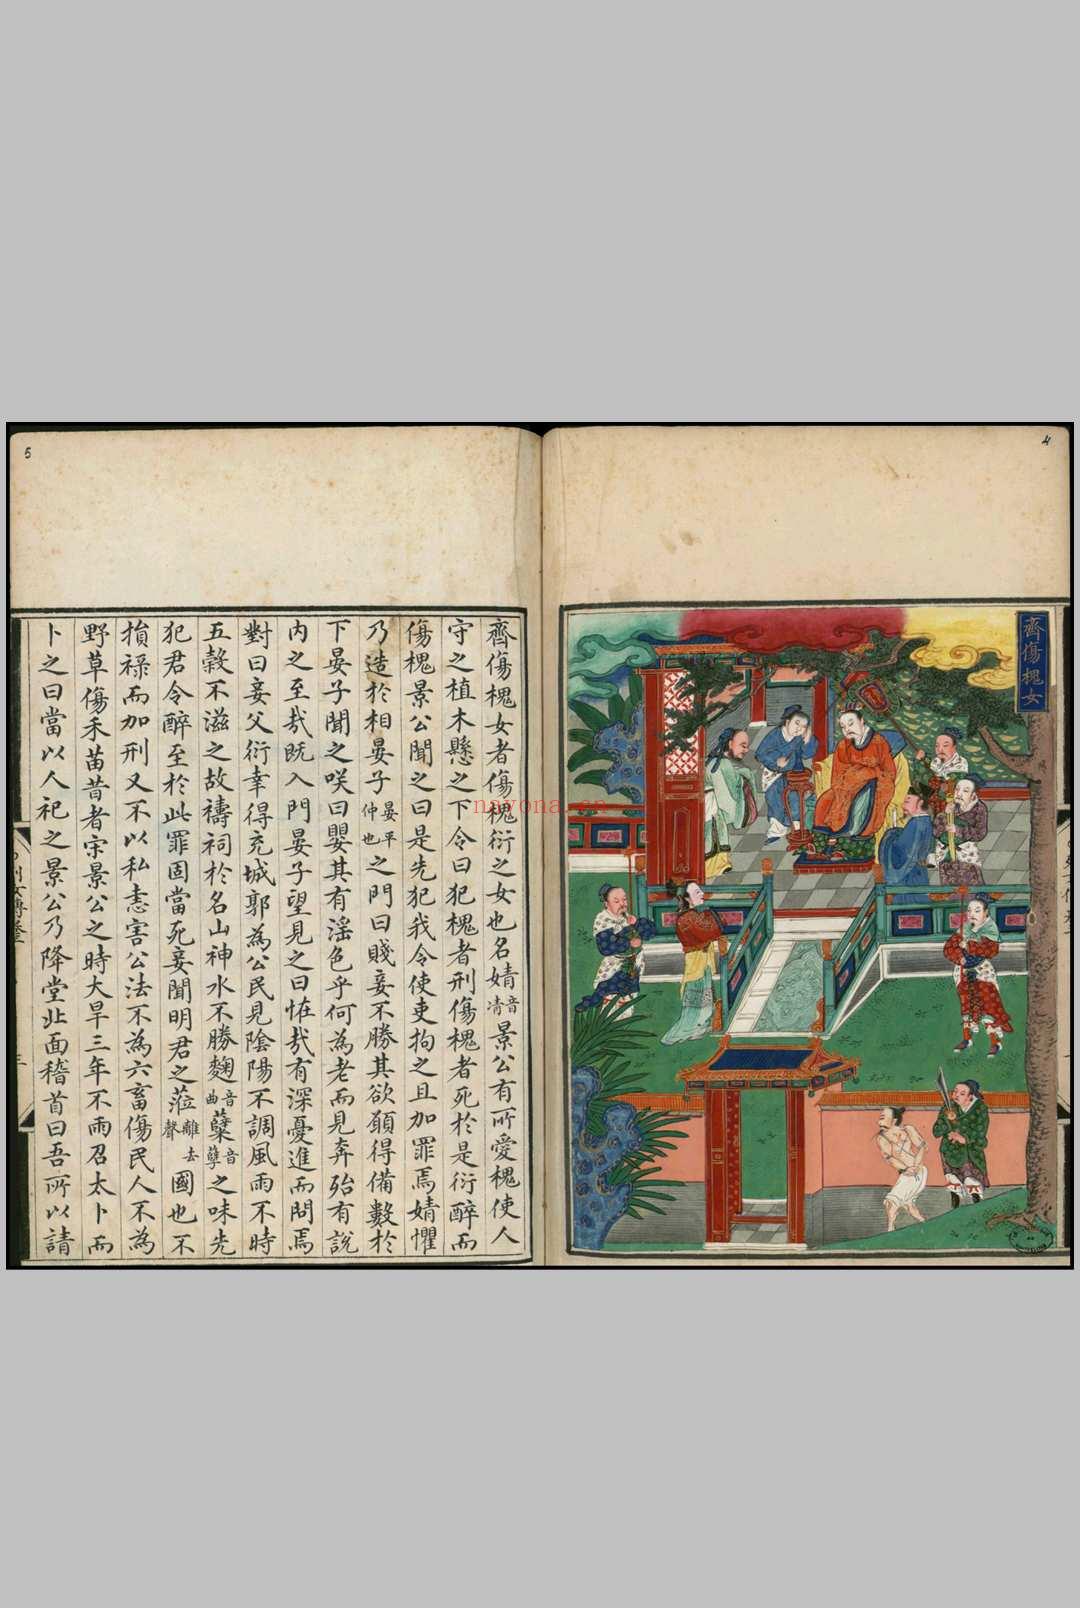 4
齊傷槐女
5
齊傷槐女者傷槐衍之女也名婧音凊景公有所愛槐使人
守之植木懸之下令曰犯槐者刑傷槐者死於是衍醉而
傷槐景公聞之曰是先犯我令使吏拘之且加罪焉婧懼
乃造於相晏子晏平仲也之門曰賤妾不勝其欲願得備數於
下晏子聞之咲曰嬰其有滛色乎何為老而見奔殆有說
內之至㦲既入門晏子望見之曰恠㦲有深憂進而問焉
對曰妾父衍幸得充城郭為公民見隂陽不調風雨不時
五糓不滋之故禱祠於名山神水不勝麴音曲糵音孽之味先
犯君令醉至於此罪固當死妾聞明君之蒞離去聲國也不
損禄而加刑又不以私恚害公法不為六畜傷民人不為
野草傷禾苗昔者宋景公之時大旱三年不雨召太卜而
卜之曰當以人祀之景公乃降堂北面稽首曰吾所以請
三
nayona.cn